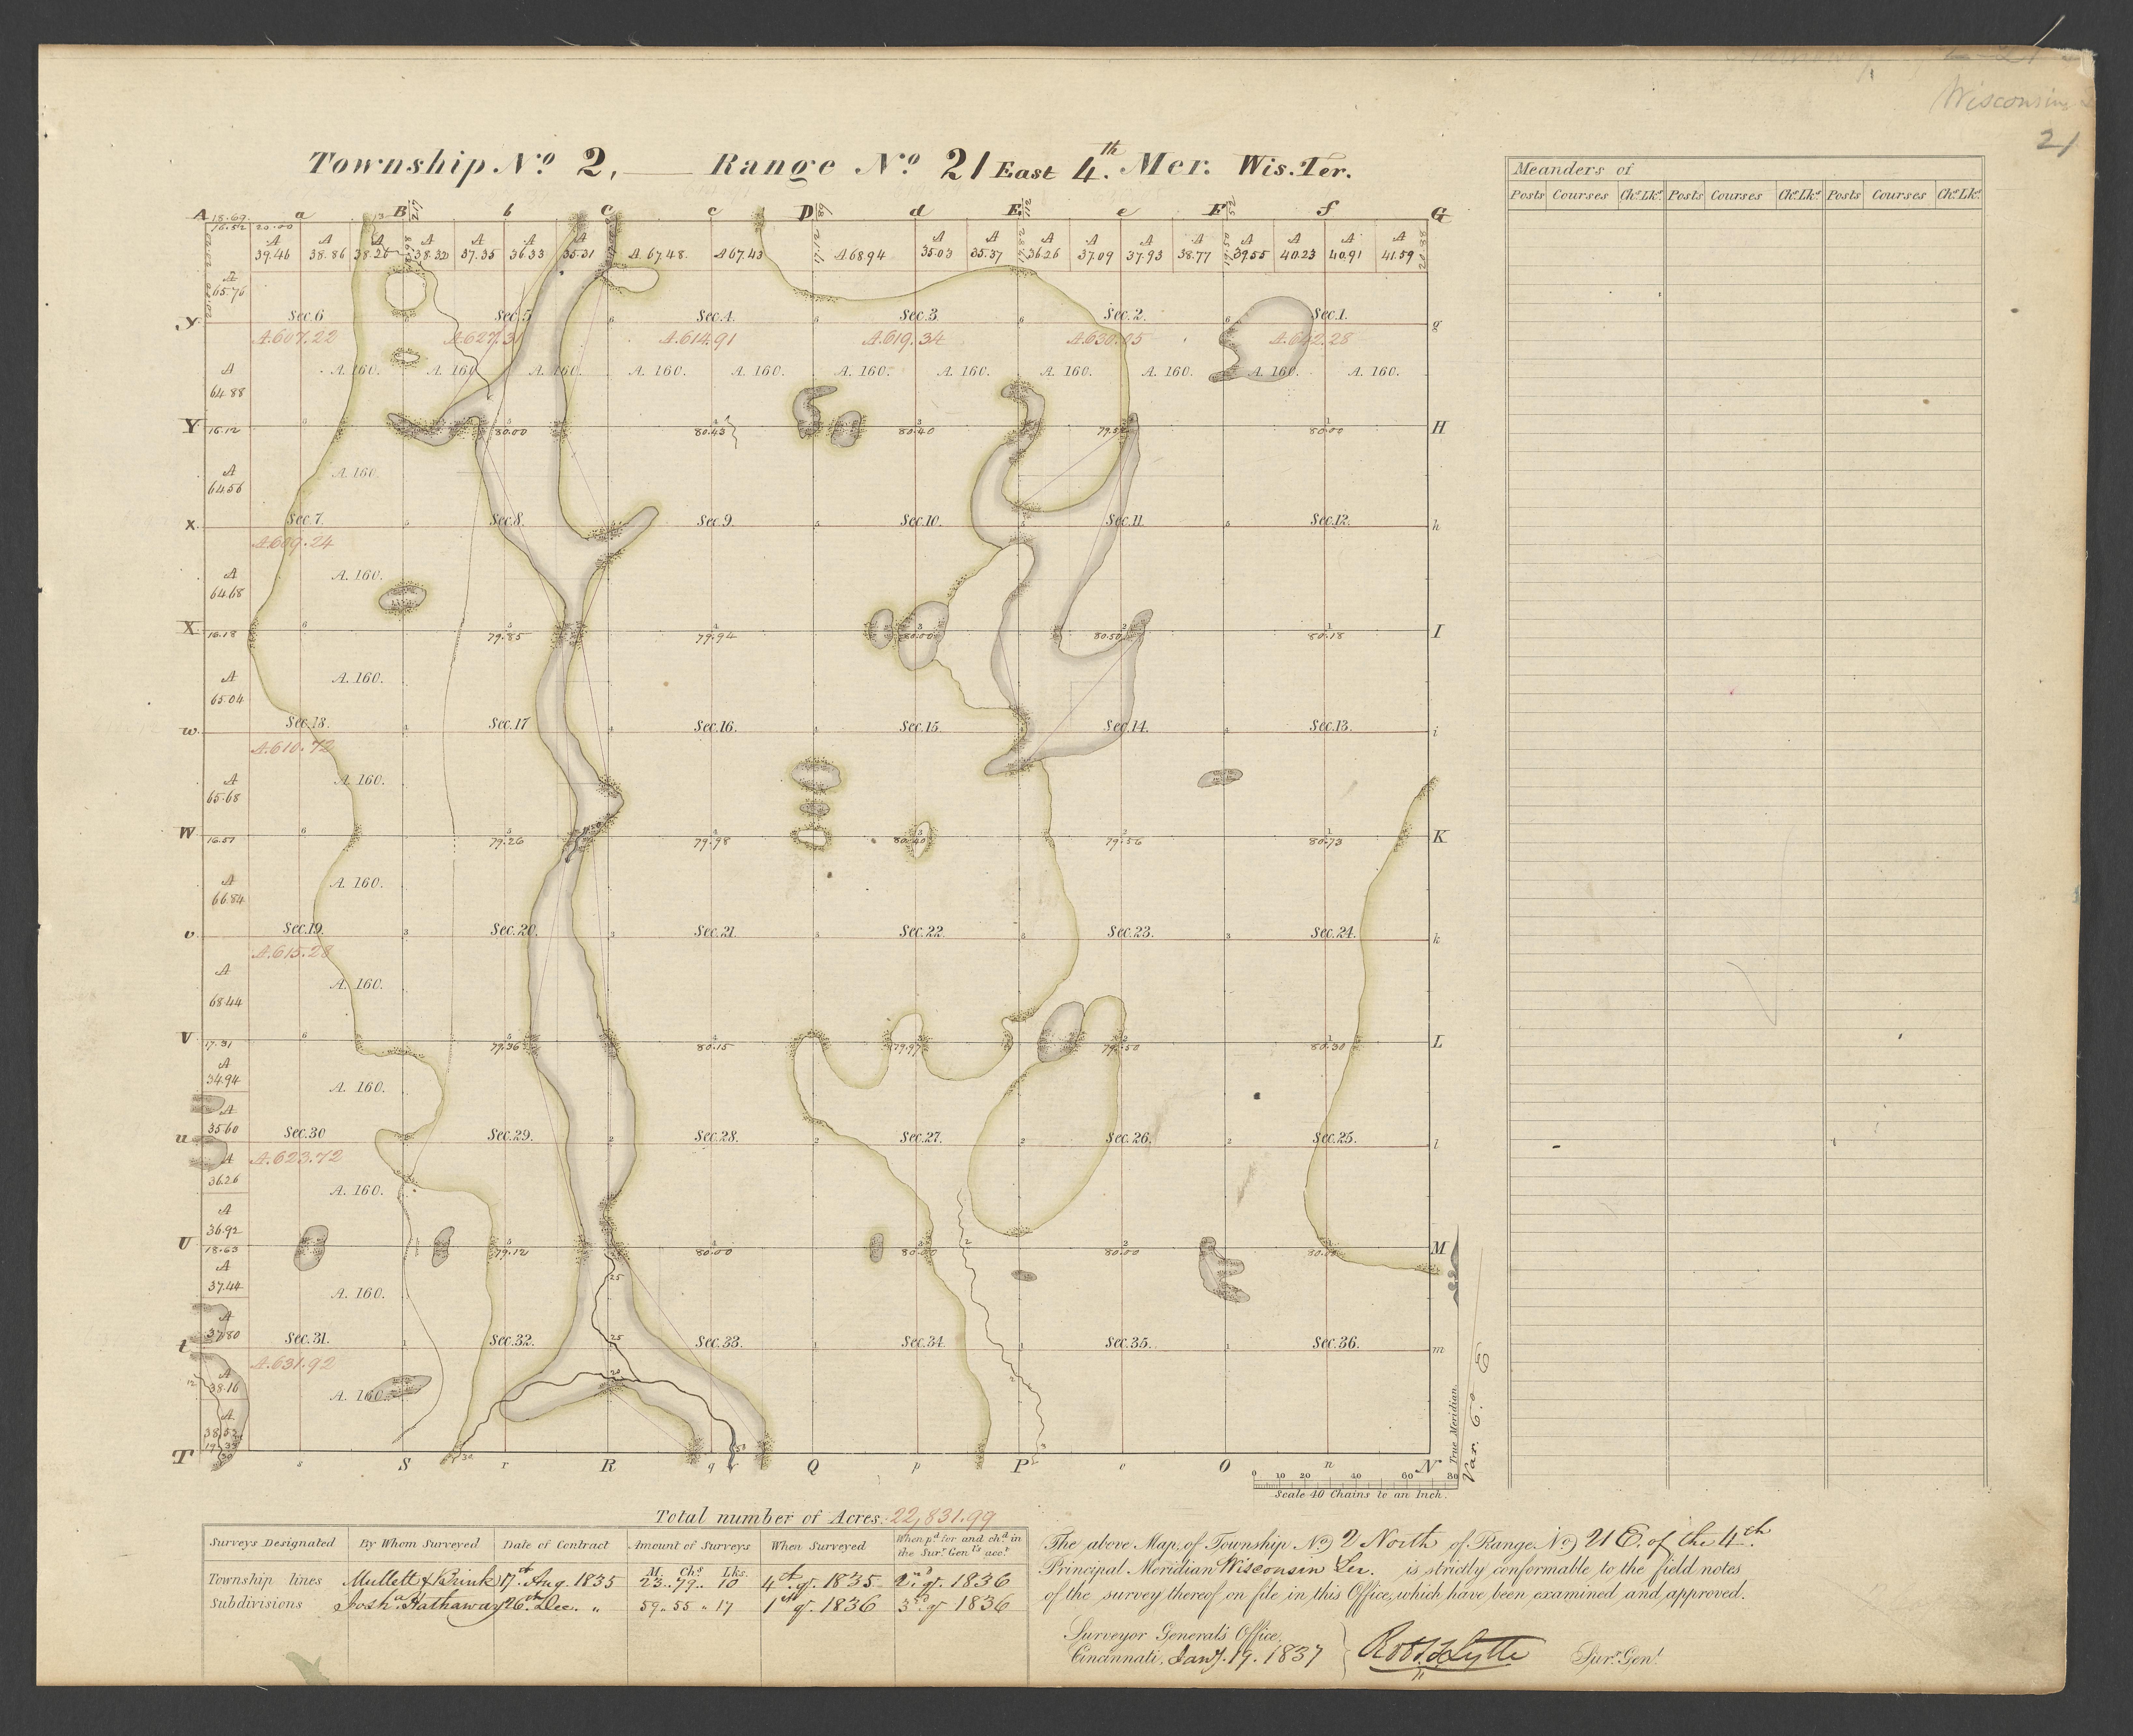 Wisconsin
21
Township No. 2, Range No. 21 East 4th Mer. Wis. Ter.
Meanders of
Posts Courses Chs. Lks. Posts Courses Chs. Lks. Posts Courses Chs. Lks.
A a B b C c D d E e F f G
18.69. 13 217 89 112 52
16.52 20.00
A A A A A A A A A A A A A A A A
39.46 38.86 38.26 38.32 37.35 36.33 35.31 A. 67.48. A 67.43 A 68.94 35.03 35.37 36.26 37.09 37.93 38.77 39.55 40.23 40.91 41.59
A
65.76
Sec. 6 Sec. 5 Sec. 4. Sec. 3. Sec. 2. Sec. 1.
y g
A. 607.22 A. 627.31 A. 614.91 A. 619.34 A. 630.05 A. 642.28
A. 160. A. 160. A. 160. A. 160. A. 160. A. 160. A. 160. A. 160. A. 160. A. 160. A. 160.
A
64.88
Y 16.12 80.00 80.43 80.40 80.00 H
A
64.56 A. 160.
x Sec. 7. Sec. 8. Sec. 9. Sec. 10. Sec. 11. Sec. 12. h
A. 609.24
A
64.68 A. 160.
X 16.18 79.85 79.94 80.00 80.50 80.18 I
A
65.04 A. 160.
w Sec. 18. Sec. 17 Sec. 16. Sec. 15. Sec. 14. Sec. 13. i
A. 610.72
A
65.68 A. 160.
W 16.51 79.26 79.98 80.40 79.56 80.73 K
A
66.84 A. 160.
v Sec. 19. Sec. 20. Sec. 21. Sec. 22. Sec. 23. Sec. 24. k
A. 615.28
A
68.44 A. 160.
V 17.31 79.36 80.15 79.97 79.50 80.30 L
A
34.94 A. 160.
A
35.60
u Sec. 30 Sec. 29. Sec. 28. Sec. 27. Sec. 26. Sec. 25. l
A. 623.72
A
36.26 A. 160.
A
36.92
U 18.63 79.12 80.00 80.00 80.00 M
A
37.44 A. 160.
A
37.80
t Sec. 31. Sec. 32. Sec. 33. Sec. 34. Sec. 35. Sec. 36. m
A. 631.92
A
38.16 A. 160.
A
38.52
T s S r R q Q p P o O n N
True Meridian.
Var. 6.° E
0 10 20 40 60 80
Scale 40 Chains to an Inch.
Total number of Acres. 22,831.99
Surveys Designated By Whom Surveyed Date of Contract Amount of Surveys When Surveyed When pd. for and chd. in the Surr. Genls. acct.
M. Chs. Lks.
Township lines Mullett & Brink 17th Aug. 1835 23 .. 79 .. 10 4th qr. 1835 2nd qr. 1836
Subdivisions Josha. Hathaway 26th Dec. „ 59 .. 55 „ 17 1st qr. 1836 3rd qr. 1836
The above Map, of Township No. 2 North of Range No. 21 E. of the 4th
Principal Meridian Wisconsin Ter. is strictly conformable to the field notes
of the survey thereof on file in this Office, which have been examined and approved.
Surveyor General's Office,
Cincinnati, Jany. 19. 1837 Robt. T. Lytle Surr. Genl.